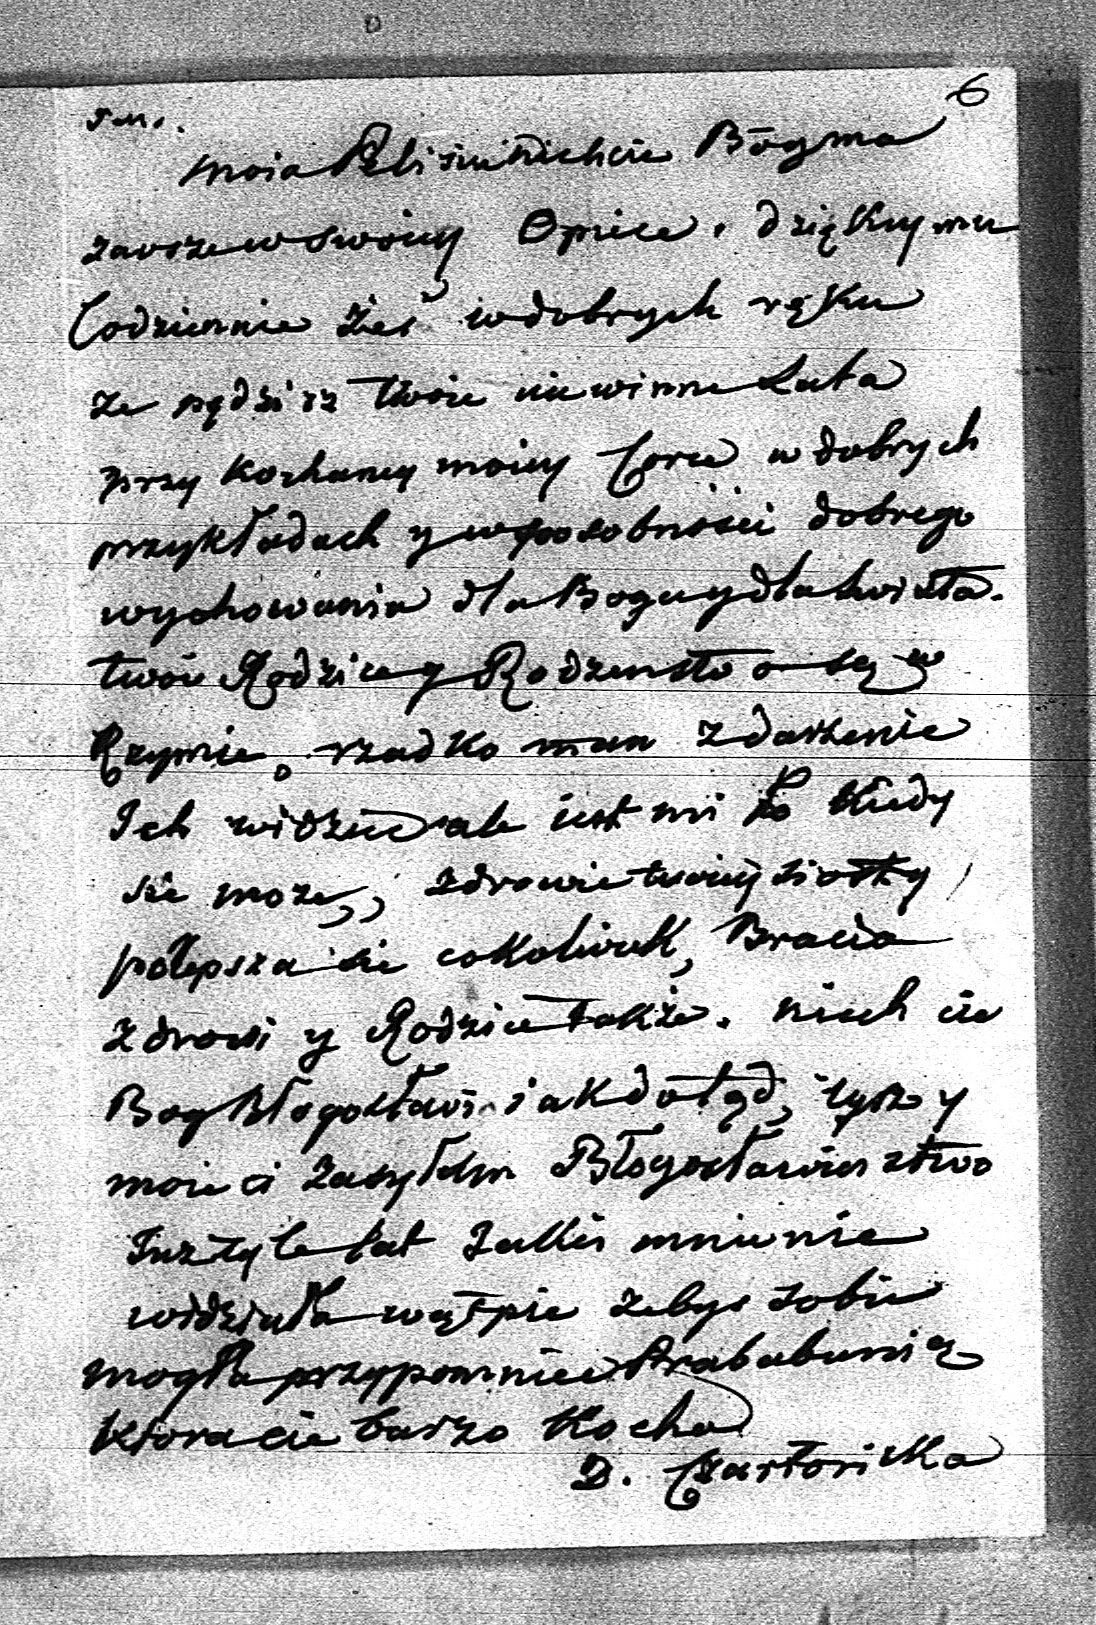 6
moia Elisiu niech cie Bóg ma
zawsze w swoiey Opiece. dziękuy mu
Codziennie żeś w dobrych ręku
ze pędzisz twoie niewinne Lata
przy kochaney moiey Corce w dobrych
przykładach y w sposobności dobrego
wychowania dla Boga y dla świata.
twoi Rodzice y Rodzenstwo są w
Rzymie, rzadko mam zdarzenie
Ich widzieć ale iest mi kiedy
sie może, zdrowie twoiey siostry
polepsza sie cokolwiek, Bracia
zdrowi y Rodzice także. niech cie
Bog błogosławi iak dotąd, y
moie ci zasyłam Błogosławienstwo
Iuz tyle lat Iakes mnie nie
widziała wątpie zebys sobie
mogła przypomniec Prababunią
ktora cie barzo Kocha
D. Czartoriska